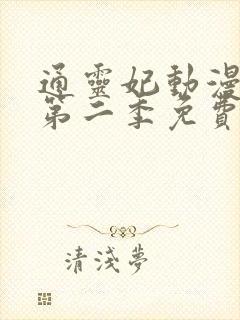 通靈妃動漫
第二季免費
清淺夢